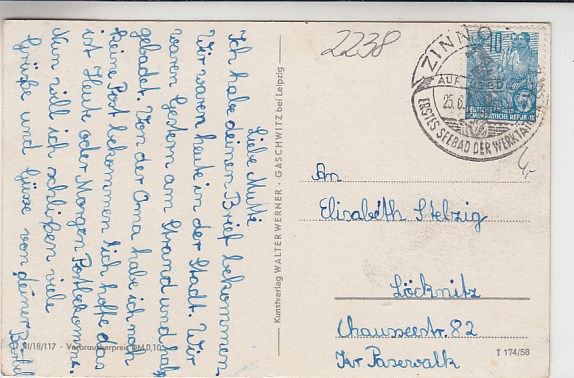 Liebe Mutti
Ich habe deinen Brief bekommen
Wir waren heute in der Stadt. Wir
waren Gestern am Strand und hab
gebadet. Von der Oma habe ich noch
keine Post bekommen Ich hoffe das
ist Heute oder Morgen Post bekomme.
Nun will ich schließen viele
Grüße und Küsse von deiner Bärbel
III/18/117 · Verbraucherpreis DM 0,10
Kunstverlag WALTER WERNER · GASCHWITZ bei Leipzig
2238
ZINNO
AUF
25.6.
ERSTES SEEBAD DER WERKTÄ
10
DEUTSCHE DEMOKRATISCHE REPUBLIK
An
Elisabeth Stelzig
Löcknitz
Chausseestr. 82
Kr Pasewalk
T 174/58